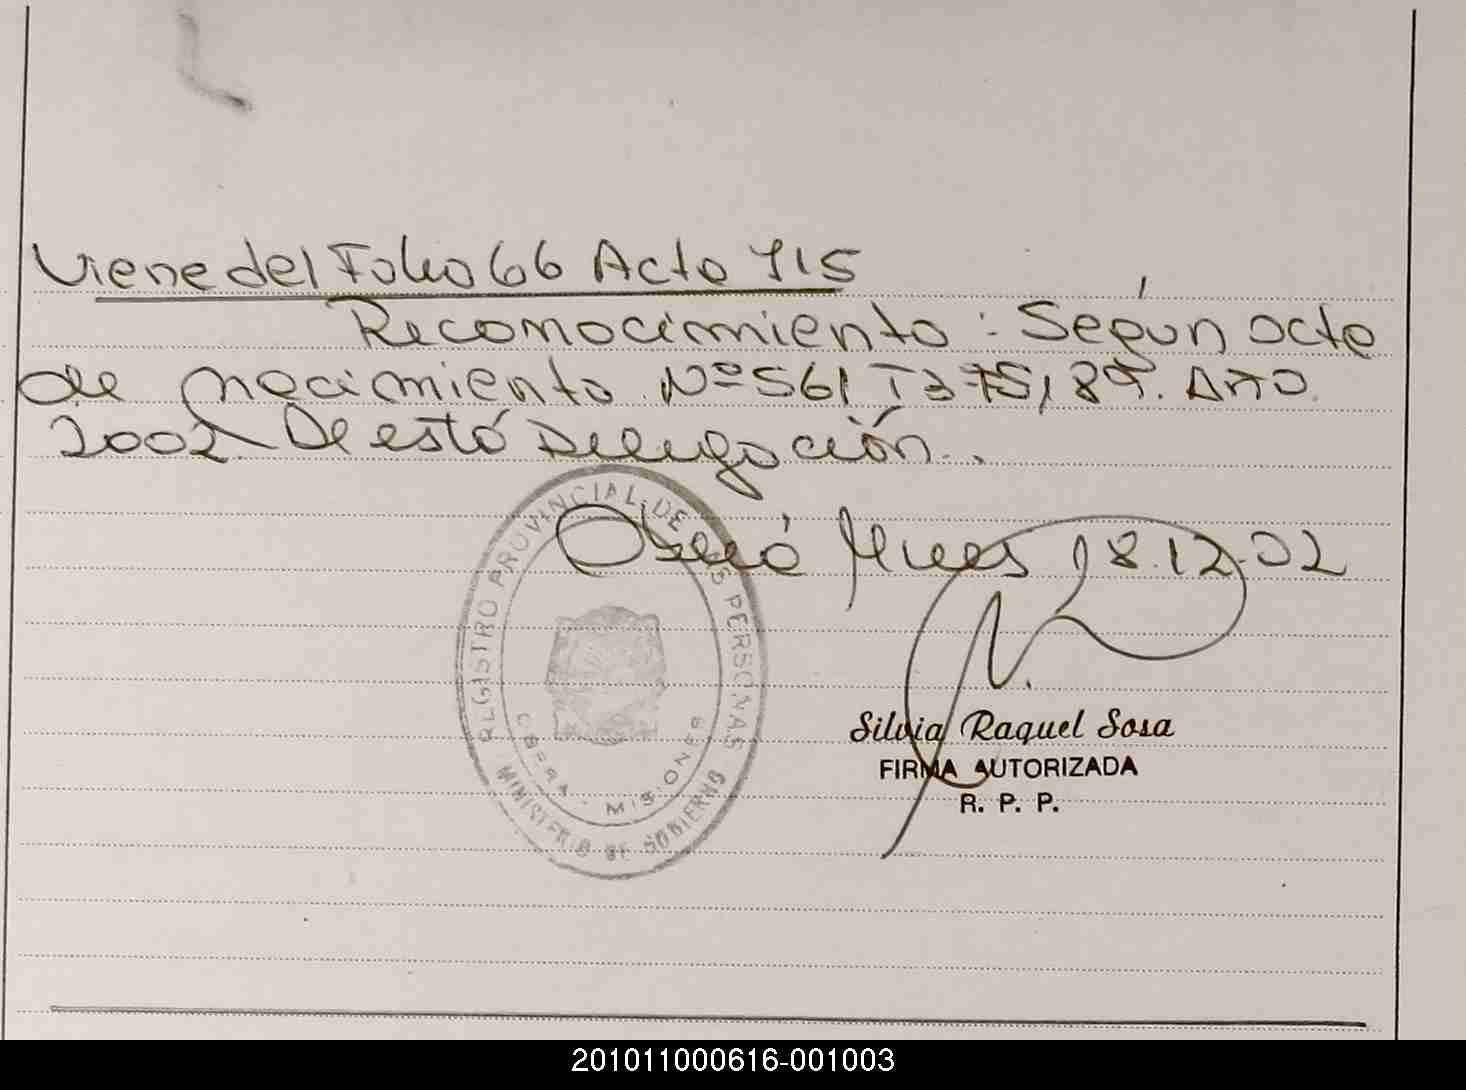 Viene del Folio 66 Acta 715
Reconocimiento: Según acta
de nacimiento Nº 561 T375/89. Año
2002 De está Delegación.
Oberá Mnes 18.12.02
REGISTRO PROVINCIAL DE LAS PERSONAS
OBERA - MISIONES
MINISTERIO DE GOBIERNO
Silvia Raquel Sosa
FIRMA AUTORIZADA
R. P. P.
201011000616-001003